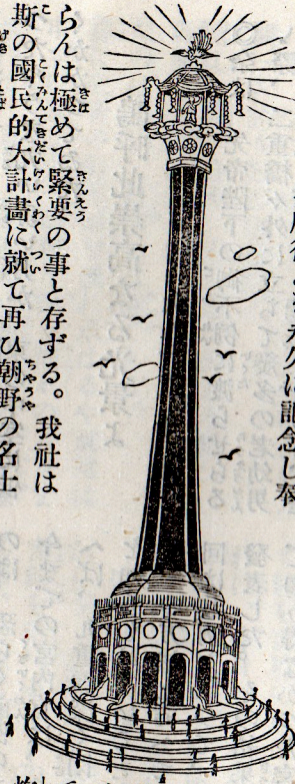 永久に記念し奉
らんは極めて緊要の事と存ずる。我社は
斯の國民的大計畫に就て再ひ朝野の名士